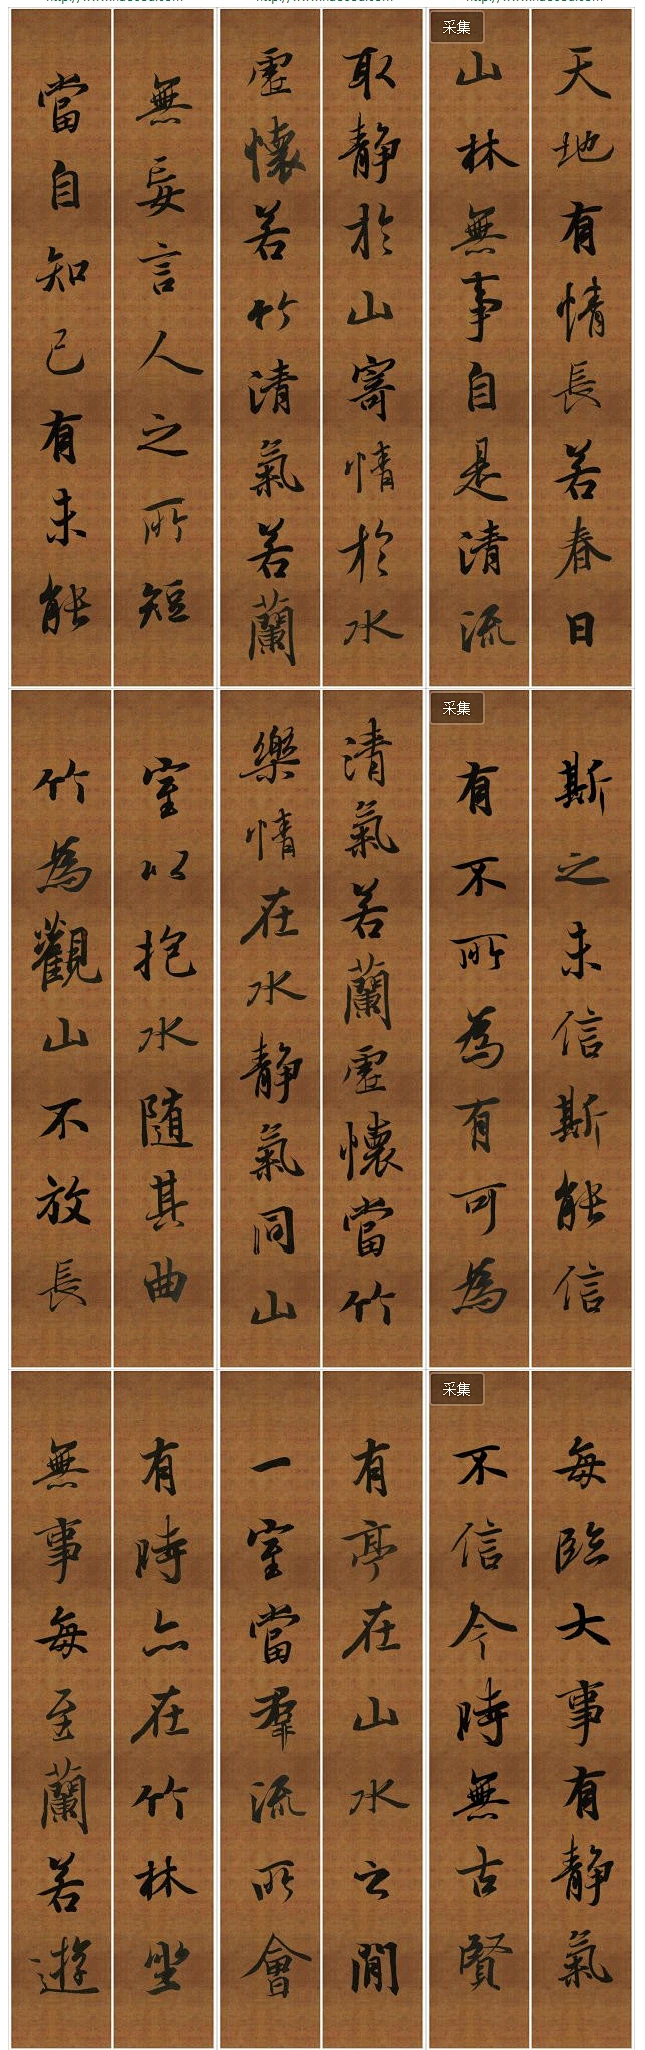 采集
天地有情長若春日
山林無事自是清流
取静於山寄情於水
虛懷若竹清氣若蘭
無妄言人之所短
當自知己有未能
采集
斯之未信斯能信
有不所為有可為
清氣若蘭虛懷當竹
樂情在水静氣同山
室以抱水随其曲
竹為觀山不放長
采集
每臨大事有静氣
不信今時無古賢
有亭在山水之間
一室當羣流所會
有時亦在竹林坐
無事每至蘭若遊